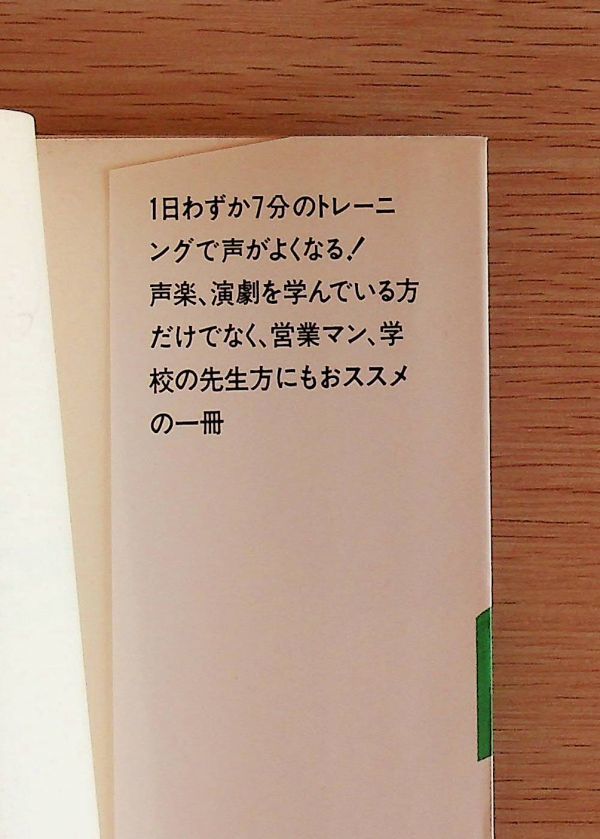 1日わずか7分のトレーニ
ングで声がよくなる!
声楽、演劇を学んでいる方
だけでなく、営業マン、学
校の先生方にもおススメ
の一冊